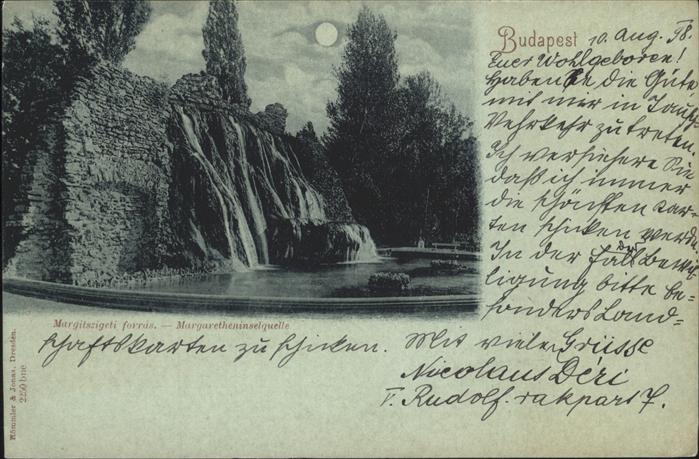 Budapest 10. Aug. 98.
Euer Wohlgeboren!
Haben Sie die Güte
mit mir in Tausch
Vehrkehr zu treten.
Ich versichere Sie
daß ich immer
die schönsten Kar-
ten schicken werde.
In der Falls der Bewil-
ligung bitte be-
sonders Land-
schaftskarten zu schicken. Mit vielen Grüsse
Nicolaus Déri
V. Rudolf-rakpart 7.
Margitszigeti forrás. — Margaretheninselquelle
Römmler & Jonas, Dresden.
2250 bne